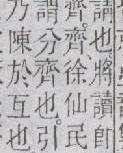 謂也將讀即
齊齊徐仙民
謂分齊也引
乃陳於互也